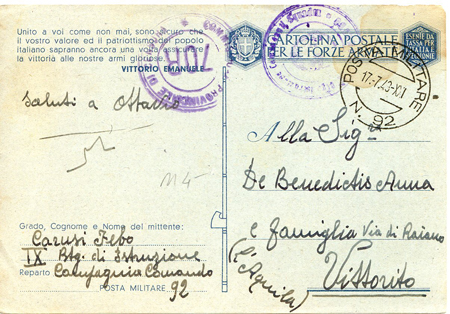 Unito a voi come non mai, sono sicuro che
il vostro valore ed il patriottismo del popolo
italiano sapranno ancora una volta assicurare
la vittoria alle nostre armi gloriose.
VITTORIO EMANUELE
CARTOLINA POSTALE
PER LE FORZE ARMATE
ESENTE DA
TASSA PER
POSTA MILITARE
17-7-43-XXI
N. 92
Saluti a
114-
Alla Sigra
De Benedictis Anna
e famiglia Via di Raiano
Vittorito
(L'Aquila)
Grado, Cognome e Nome del mittente:
Carusi Febo
IX Btg. di Istruzione
Reparto Compagnia Comando
POSTA MILITARE 92